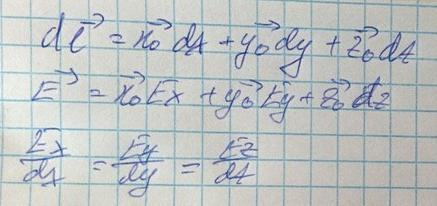 dl⃗ = x⃗₀ dx + y⃗₀ dy + z⃗₀ dz
E⃗ = x⃗₀ Ex + y⃗₀ Ey + z⃗₀ dz
Ex/dx = Ey/dy = Ez/dz